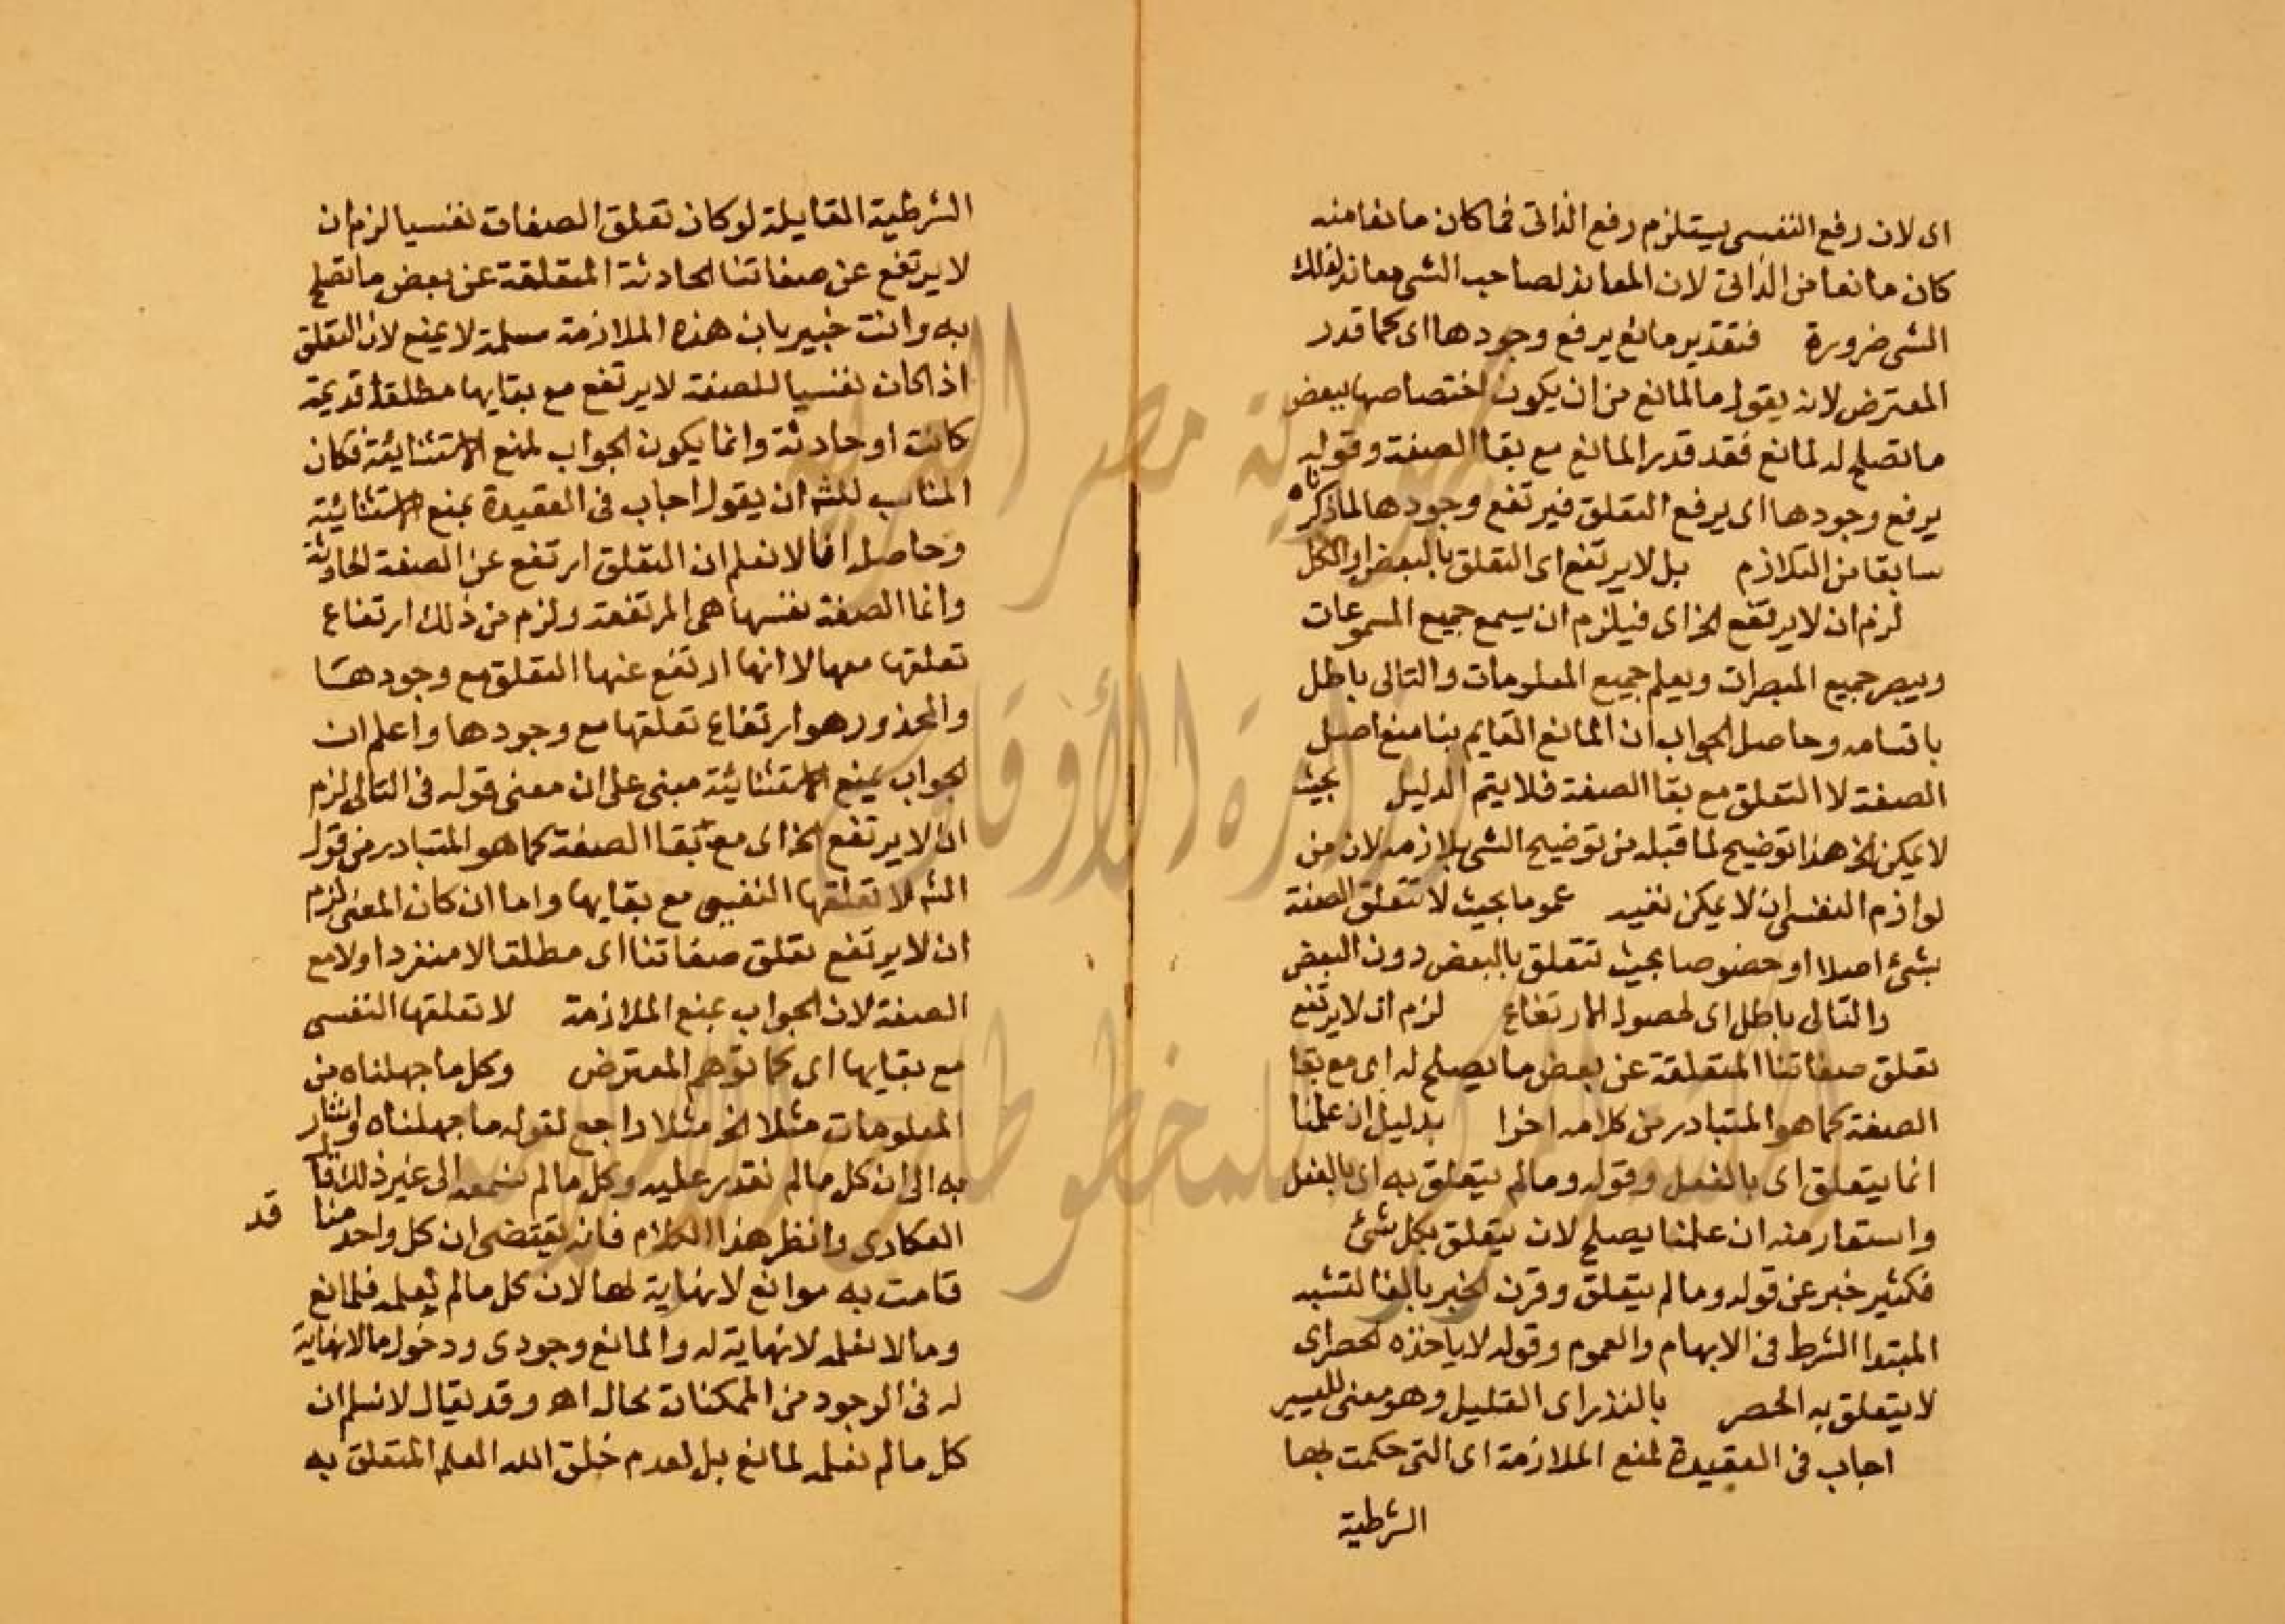 اى لان رفع النفسى يستلزم رفع الذاتى فما كان مانعا منه
كان مانعا من الذاتى لان المعاند لصاحب الشى معاند لذلك
الشى ضرورة فتقدير مانع يرفع وجودها اى كما قدر
المعترض لانه يقول ما المانع من ان يكون اختصاصها ببعض
ما تصلح له لمانع فقد قدر المانع مع بقا الصفة وقوله
يرفع وجودها اى يرفع التعلق فيرتفع وجودها لما ذكرناه
سابقا من التلازم بل لا يرتفع اى التعلق بالبعض او الكل
لزم ان لا يرتفع الخ اى فيلزم ان يسمع جميع المسموعات
ويبصر جميع المبصرات ويعلم جميع المعلومات والتالى باطل
باقسامه وحاصل الجواب ان المانع القايم بنا منع اصل
الصفة لا التعلق مع بقا الصفة فلا يتم الدليل بحيث
لا يمكن الخ هذا توضيح لما قبله من توضيح الشى بلازمه لان من
لوازم النفسى ان لا يمكن نفيه عموما بحيث لا تتعلق الصفة
بشئ اصلا او خصوصا بحيث تتعلق بالبعض دون البعض
والتالى باطل اى لحصول الارتفاع لزم ان لا يرتفع
تعلق صفاتنا المتعلقة عن بعض ما يصلح له اى مع بقا
الصفة كما هو المتبادر من كلامه اخرا بدليل ان علمنا
انما يتعلق اى بالفعل وقوله وما لم يتعلق به اى بالفعل
واستفاد منه ان علمنا يصلح لان يتعلق بكل شئ
فكثير خبر عن قوله وما لم يتعلق وقرن الخبر بالفا لتشبه
المبتدا الشرط فى الابهام والعموم وقوله لا ياخذه الحصر اى
لا يتعلق به الحصر بالنذر اى القليل وهو معنى لليسير
اجاب فى العقيدة لمنع الملازمة اى التى حكمت بها
الشرطية
الشرطية القايلة لو كان تعلق الصفات نفسيا لزم ان
لا يرتفع عن صفاتنا الحادثة المتعلقة عن بعض ما تصلح
به وانت خبير بان هذه الملازمة مسلمة لا يمنع لان التعلق
اذا كان نفسيا للصفة لا يرتفع مع بقايها مطلقا قديمة
كانت او حادثة وانما يكون الجواب لمنع الاستثنايئة فكان
المناسب للشه ان يقول اجاب فى العقيدة بمنع الاستثنائية
وحاصله انا لا نعلم ان التعلق ارتفع عن الصفة الحادثة
وانما الصفة نفسها هى المرتفعة ولزم من ذلك ارتفاع
تعلقها معها لا انها ارتفع عنها التعلق مع وجودها
والمحذور هو ارتفاع تعلقها مع وجودها واعلم ان
الجواب بمنع الاستثنائية مبنى على ان معنى قوله فى التالى لزم
ان لا يرتفع الخ اى مع بقا الصفة كما هو المتبادر من قول
الشه لا تعلقها النفسى مع بقايها واما ان كان المعنى لزم
ان لا يرتفع تعلق صفاتنا اى مطلقا لا منفردا ولا مع
الصفة لان الجواب بمنع الملازمة لا تعلقها النفسى
مع بقايها اى كما توهم المعترض وكل ما جهلناه من
المعلومات مثلا الخ مثلا راجع لقوله ما جهلناه واشار
به الى ان كل ما لم نقدر عليه وكل ما لم نسمعه الى غير ذلك قال
العكارى وانظر هذا الكلام فانه يقتضى ان كل واحد منا قد
قامت به موانع لا نهاية لها لان كل ما لم يعلمه فلمانع
وما لا نعلمه لا نهاية له والمانع وجودى ودخول ما لا نهاية
له فى الوجود من الممكنات محال اه وقد يقال لا نسلم ان
كل ما لم نعلمه لمانع بل لعدم خلق الله العلم المتعلق به